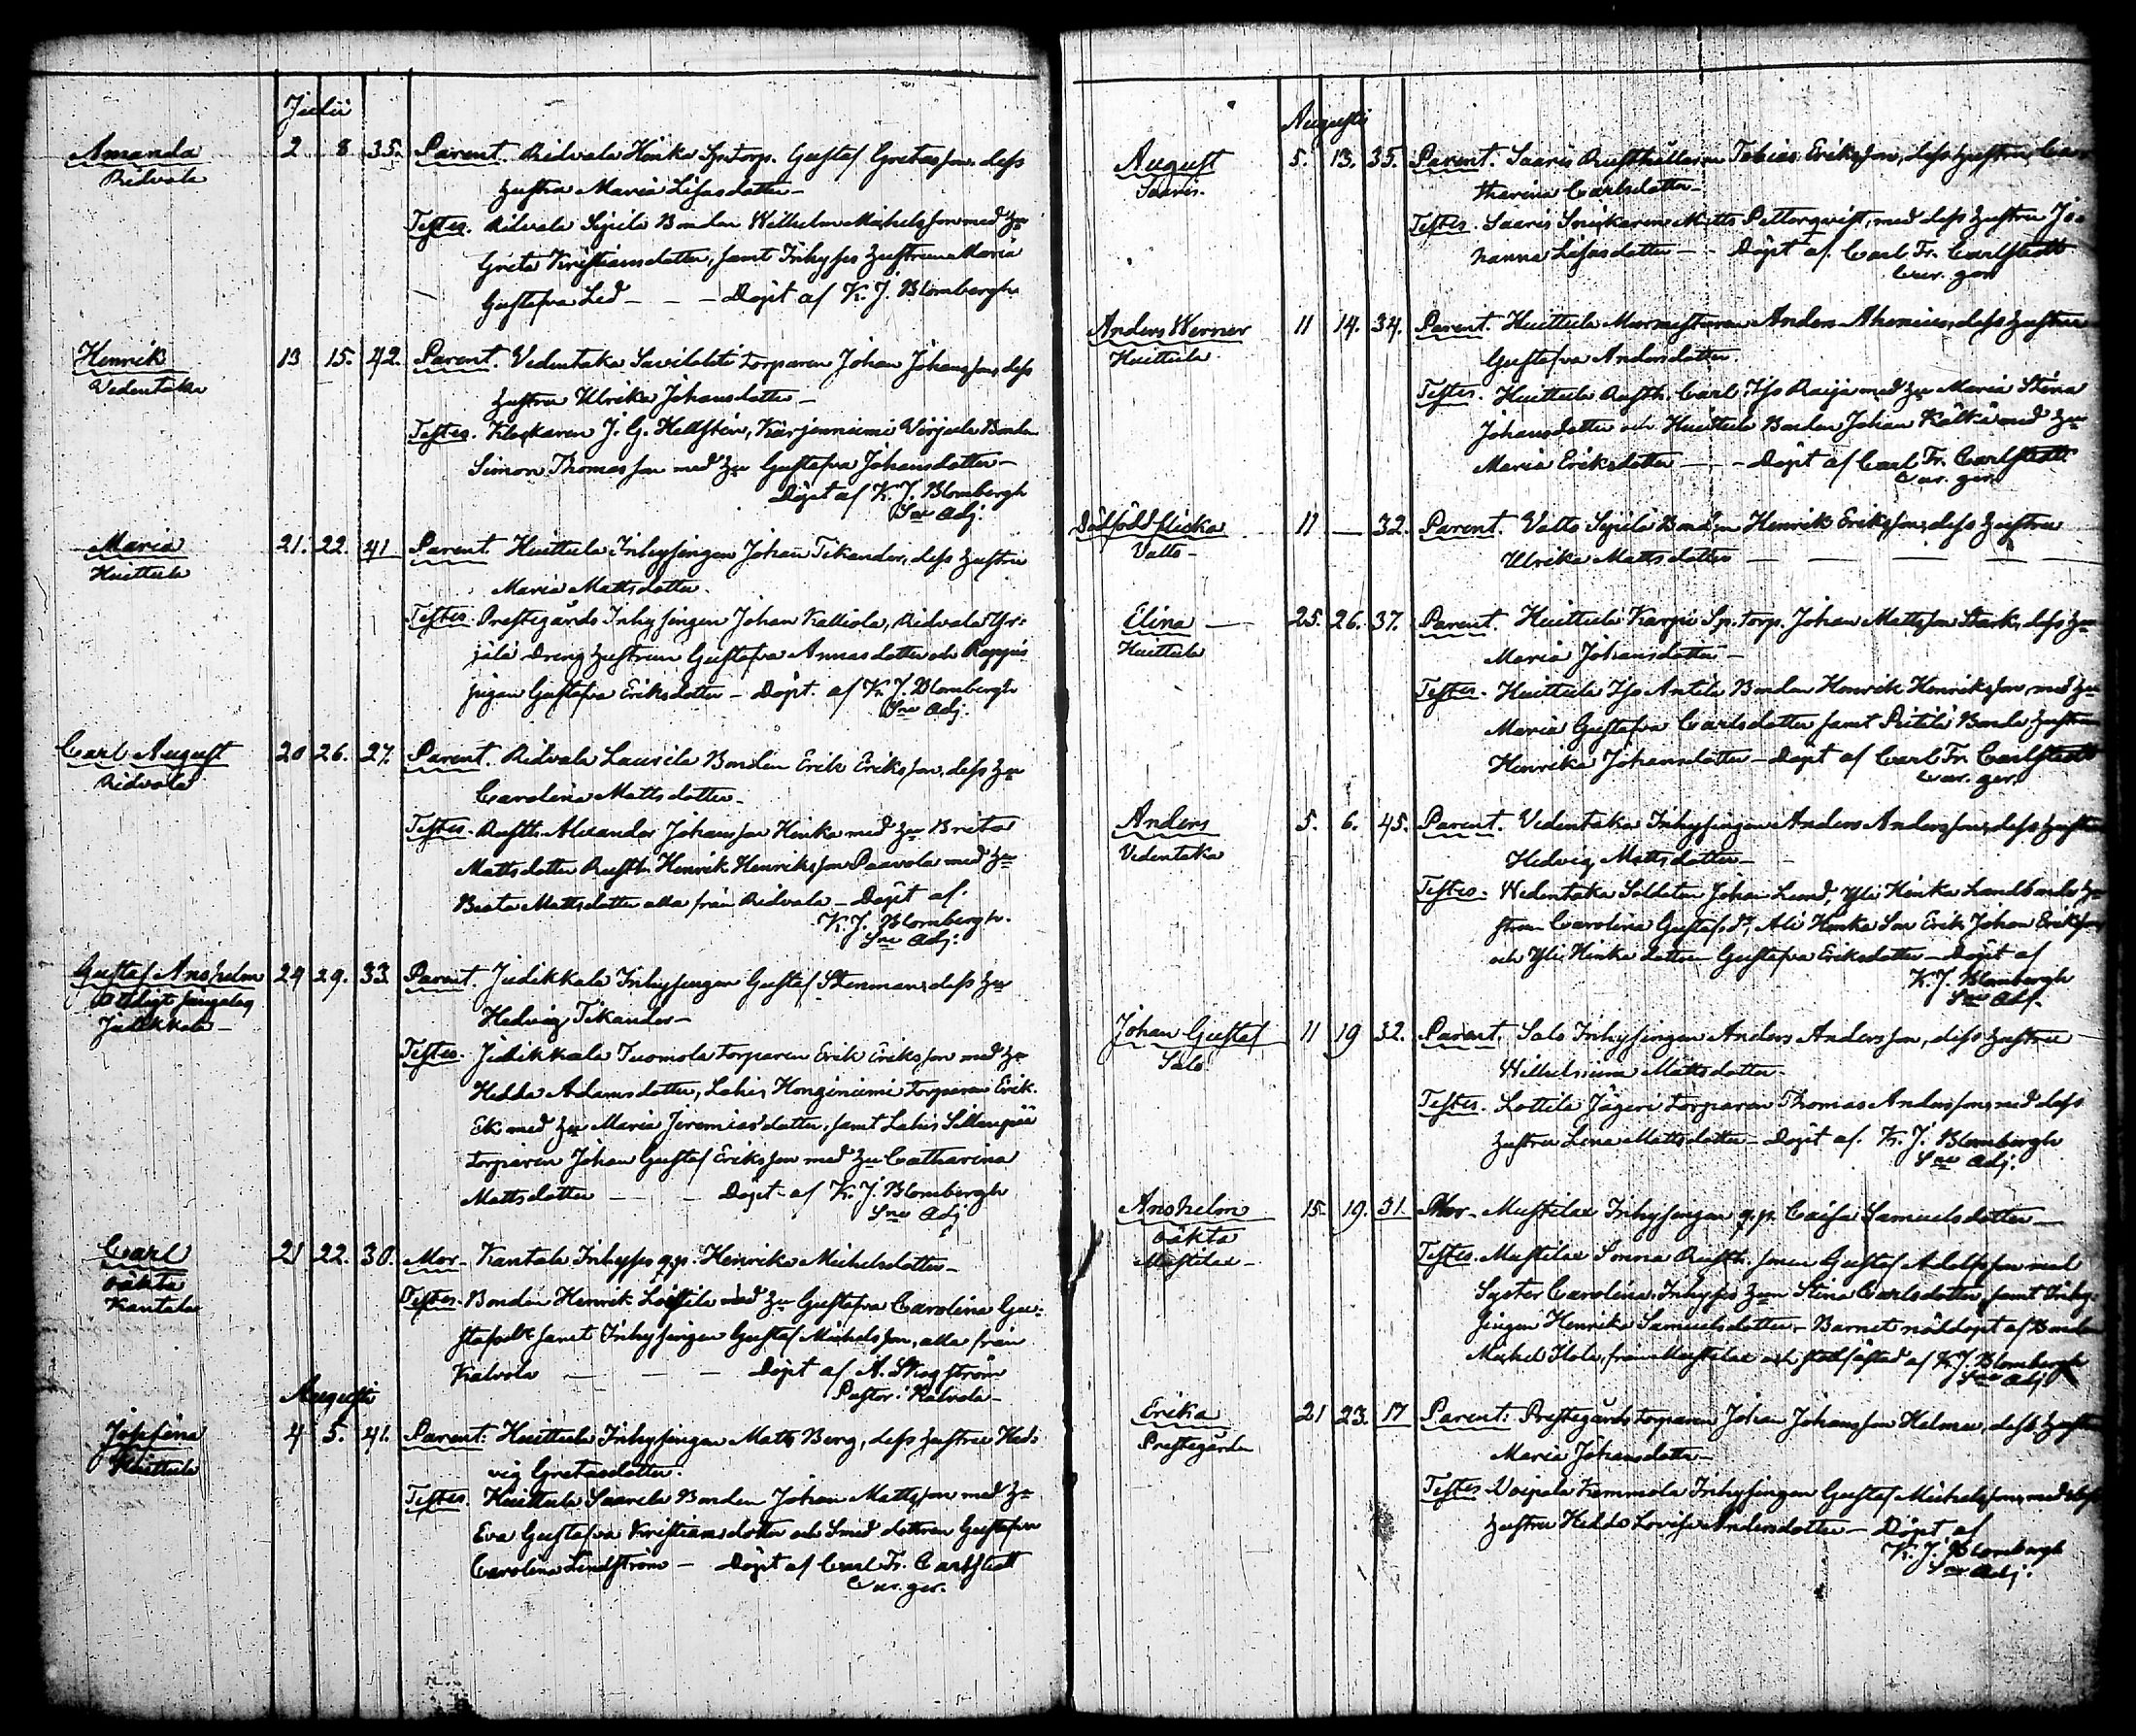 Julii
Amanda 2 8 35. Parent. Ridvala Hinka Sp. torp. Gustaf Gretasson, dess
Ridvala hustru Maria Lisasdotter –
Testes. Ridvala Sipilä Bonden Wilhelm Michelsson med Hu
Greta Kristiansdotter, samt Inhyses hustrun Maria
Gustafva Lid – – – Döpt af K. J. Blombergh
Henrik 13 15. 42. Parent. Vedentaka Savilahti torparen Johan Johansson, dess
Vedentaka hustru Ulrika Johansdotter –
Testes. Klockaren J. G. Hellstén, Kärjenniemi Virjula Bonden
Simon Thomasson med Hu Gustafva Johansdotter –
Döpt af K. J. Blombergh
Sne Adj.
Maria 21. 22. 41 Parent. Huittula Inhysingen Johan Tikander, dess hustru
Huittula Maria Mattsdotter.
Testes. Prestegårds Inhysingen Johan Kalliola, Ridvala Yr-
jälä Dreng hustrun Gustafva Annasdotter och
pigan Gustafva Eriksdotter – Döpt. af K. J. Blombergh
Sne Adj.
Carl August 20 26. 27. Parent. Ridvala Laurila Bonden Erik Eriksson, dess Hu
Ridvala Carolina Mattsdotter –
Testes. Rusth. Alexander Johansson Hinka med Hu Brita
Mattsdotter Rusth. Henrik Henriksson Paavola med Hu
Beata Mattsdotter alla från Ridvala – Döpt af
K. J. Blombergh.
Sne Adj.
Gustaf Anshelm 24 29. 33. Parent. Judikkala Inhysingen Gustaf Stenman, dess Hu
Hedvig Tikander –
Judikkala –
Testes. Judikkala Tuomola torparen Erik Eriksson med Hu
Hedda Adamsdotter, Lahis Honginiemi torparen Erik
Ek med Hu Maria Jeremiasdotter, samt Lahis Sillanpää
torparen Johan Gustaf Eriksson med Hu Catharina
Mattsdotter – – Döpt af K. J. Blombergh
Sne Adj
Carl 21 22. 30. Mor – Kantala Inhyses q.p. Henrika Michelsdotter –
oäkta
Kantala
Testes. Bonden Henrik med Hu Gustafva Carolina Gu-
stafsdr samt Inhysingen Gustaf Michelsson, alla från
Kalvola – – – Döpt af A. Skogström
Pastor i Kalvola –
Augusti
Josefina 4 5. 41. Parent. Huittula Inhysingen Matts Berg, dess hustru Hed-
Huittula vig Gretasdotter.
Testes. Huittula Saarela Bonden Johan Mattsson med Hu
Eva Gustafva Kristiansdotter och Smed dottren Gustafva
Carolina Lindström – Döpt af Carl Fr. Carlstedt
Cur. ger.
Augusti
August 5. 13. 35. Parent. Saaris Rusthållaren Tobias Eriksson, dess hustru Ca-
Saaris. tharina Carlsdotter –
Testes. Saaris Snickaren Matts Petterqvist, med dess hustru Jo-
hanna Lisasdotter – – Döpt af. Carl Fr. Carlstedt
Cur. ger
Anders Werner 11 14. 34. Parent. Huittula Murmestaren Anders Ahenius, dess hustru
Huittula Gustafva Andersdotter.
Testes. Huittula Rusth. Carl Iso Raija med Hu Maria Stina
Johansdotter och Huittula Bonden Johan Kälkä med Hu
Maria Eriksdotter – – Döpt af Carl Fr. Carlstedt
Cur. ger.
Dödfödd flicka 11 – 32. Parent. Valto Sipilä Bonden Henrik Eriksson, dess hustru
Valto – Ulrika Mattsdotter – – – –
Elina – 25. 26. 37. Parent. Huittula Karpi Sp. torp. Johan Mattsson Stark, dess Hu
Huittula Maria Johansdotter –
Testes. Huittula Iso Antila Bonden Henrik Henriksson, med Hu
Maria Gustafva Carlsdotter samt Pietilä Bonde hustrun
Henrika Johansdotter – Döpt af Carl Fr. Carlstedt
Cur. ger.
Anders 5. 6. 45. Parent. Vedentaka Inhysingen Anders Andersson, dess hustru
Vedentaka Hedvig Mattsdotter –
Testes. Wedentaka Soldaten Johan Lund, Yli Hinka Landbonde hu-
strun Carolina Gustafsdr, Ali Hinka Son Erik Johan Eriksson
och Yli Hinka dottren Gustafva Eriksdotter – Döpt af
K. J. Blombergh
Sne Adj.
Johan Gustaf 11 19 32. Parent. Salo Inhysingen Anders Andersson, dess hustru
Salo Wilhelmina Mattsdotter.
Testes. Lottila Jägeri torparen Thomas Andersson, med dess
hustru Lena Mattsdotter – Döpt af. K. J. Blombergh
Sne Adj.
Anshelm 15. 19. 31. Mor – Mustila Inhysingen q.p. Caisa Samuelsdotter –
oäkta
Mustila –
Testes. Mustila Sonna Rusth. sonen Gustaf Adolfsson med
Syster Carolina, Inhyses Hun Stina Carlsdotter, samt Inhy-
singen Henrika Samuelsdotter – Barnet nöddöpt af Bonden
Michel Hola, från Mustila och stadfästad af K. J. Blombergh
Sne Adj
Erika 21 23. 17 Parent: Prestegårds torparen Johan Johansson Helmer, dess hustru
Prestegården Maria Johansdotter –
Testes. Voipala Kemmola Inhysingen Gustaf Michelsson, med dess
hustru Hedda Lovisa Andersdotter – Döpt af
K. J. Blombergh
Sne Adj.